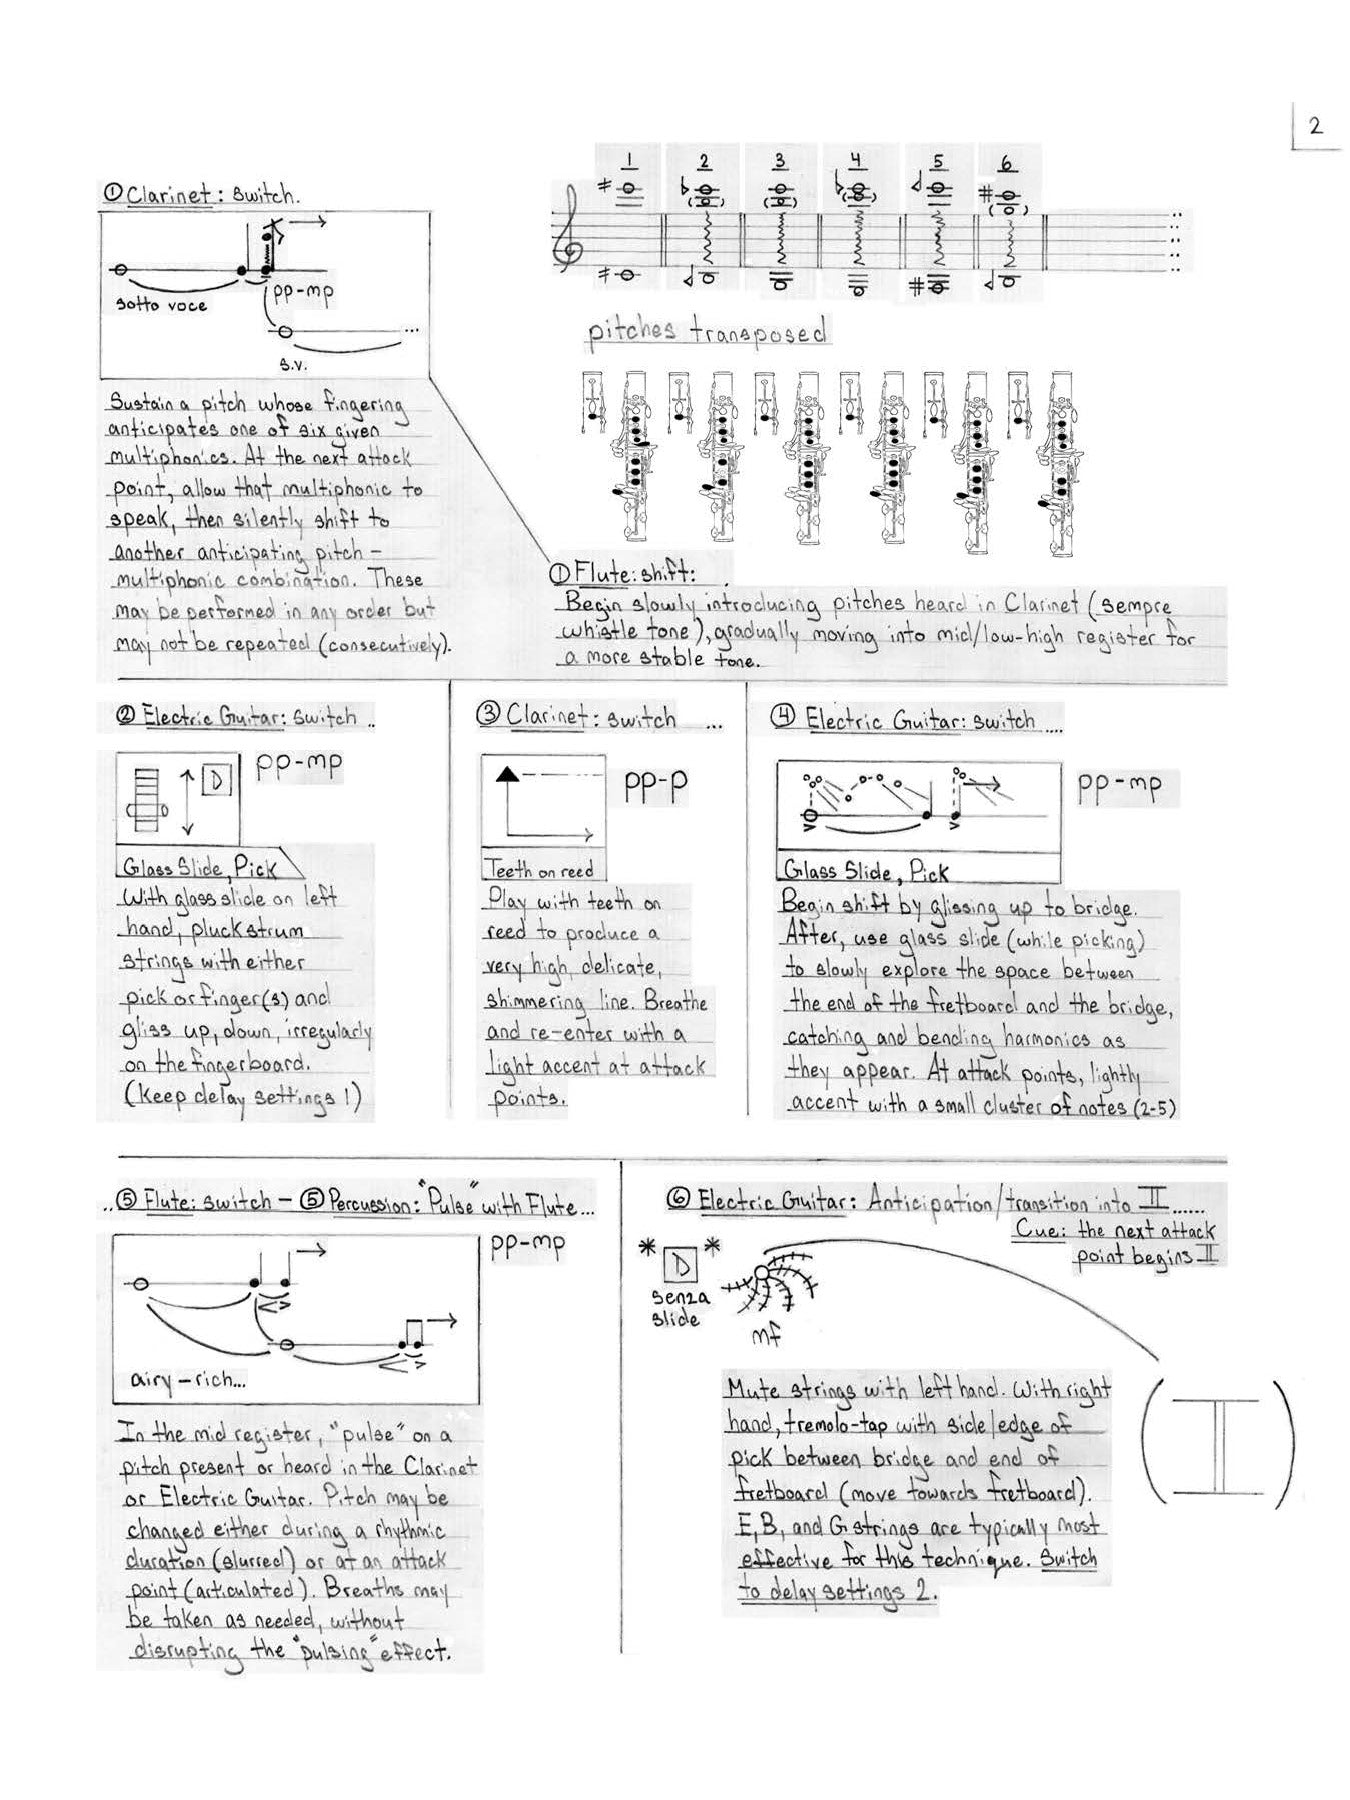 2
① Clarinet: switch.
sotto voce
pp-mp
s.v.
...
Sustain a pitch whose fingering
anticipates one of six given
multiphonics. At the next attack
point, allow that multiphonic to
speak, then silently shift to
another anticipating pitch -
multiphonic combination. These
may be performed in any order but
may not be repeated (consecutively).
1 2 3 4 5 6
pitches transposed
① Flute: shift:
Begin slowly introducing pitches heard in Clarinet (sempre
whistle tone), gradually moving into mid/low-high register for
a more stable tone.
② Electric Guitar: switch ..
D
pp-mp
Glass Slide, Pick
With glass slide on left
hand, pluck strum
strings with either
pick or finger(s) and
gliss up, down, irregularly
on the fingerboard.
(Keep delay settings 1)
③ Clarinet: switch ...
pp-p
Teeth on reed
Play with teeth on
reed to produce a
very high, delicate,
shimmering line. Breathe
and re-enter with a
light accent at attack
points.
④ Electric Guitar: switch ....
pp-mp
Glass Slide, Pick
Begin shift by glissing up to bridge.
After, use glass slide (while picking)
to slowly explore the space between
the end of the fretboard and the bridge,
catching and bending harmonics as
they appear. At attack points, lightly
accent with a small cluster of notes (2-5)
..⑤ Flute: switch - ⑤ Percussion: "Pulse" with Flute...
pp-mp
airy-rich...
In the mid register, "pulse" on a
pitch present or heard in the Clarinet
or Electric Guitar. Pitch may be
changed either during a rhythmic
duration (slurred) or at an attack
point (articulated). Breaths may
be taken as needed, without
disrupting the "pulsing" effect.
⑥ Electric Guitar: Anticipation/transition into II......
Cue: the next attack
point begins II
* D *
senza
slide
mf
Mute strings with left hand. With right
hand, tremolo-tap with side/edge of
pick between bridge and end of
fretboard (move towards fretboard).
E, B, and G strings are typically most
effective for this technique. Switch
to delay settings 2.
(II)